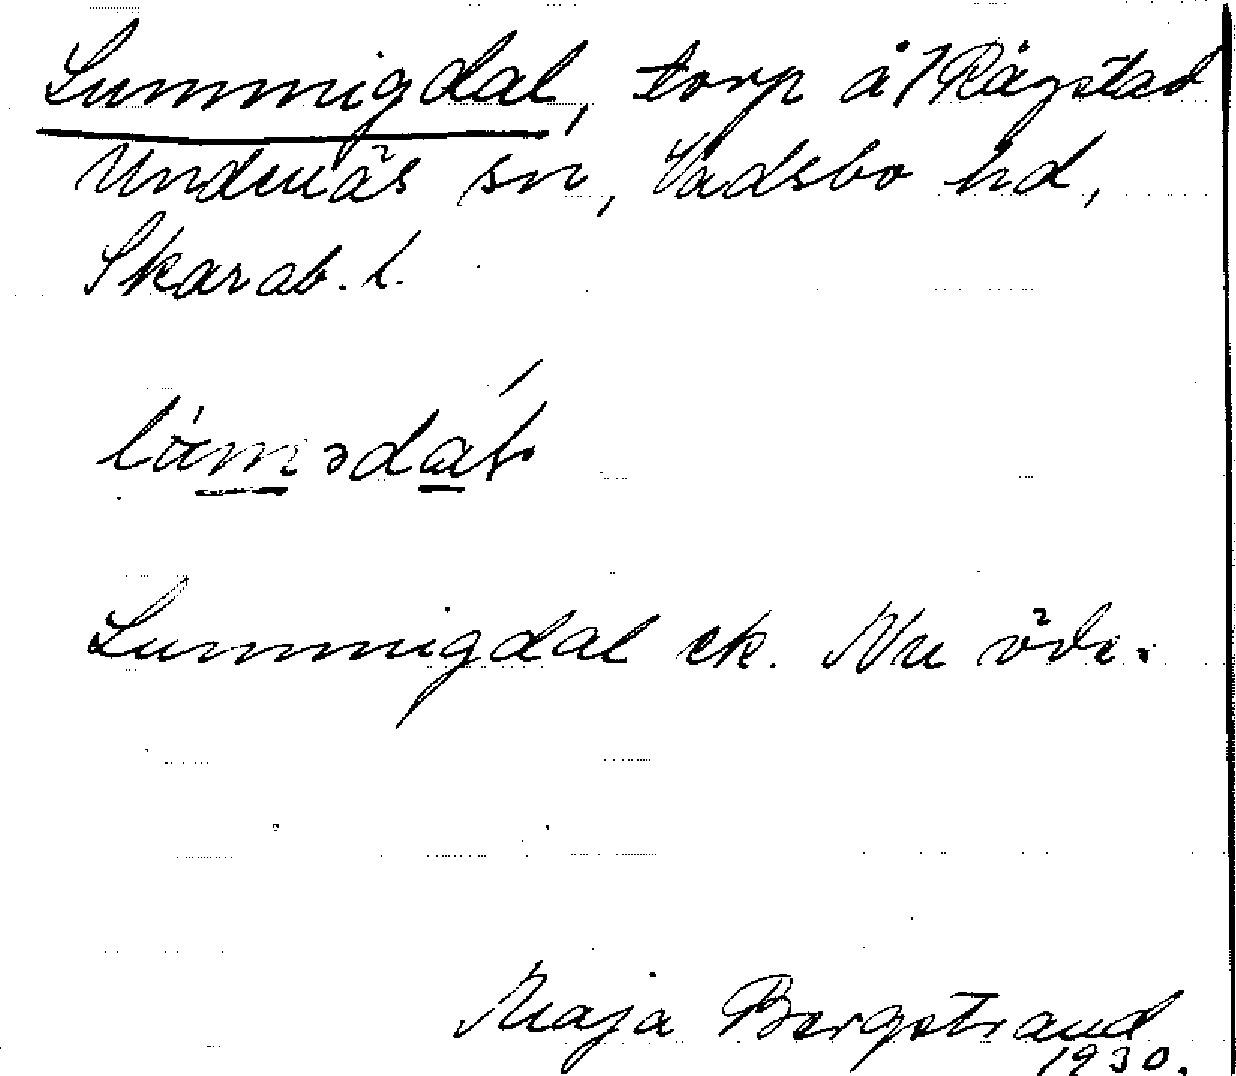 Lummigdal, torp å/Rågstad
Undenäs sn, Vadsbo hd,
Skarab. l.
Lummigdal ek. Nu öde.
Maja Bergstrand
1930.